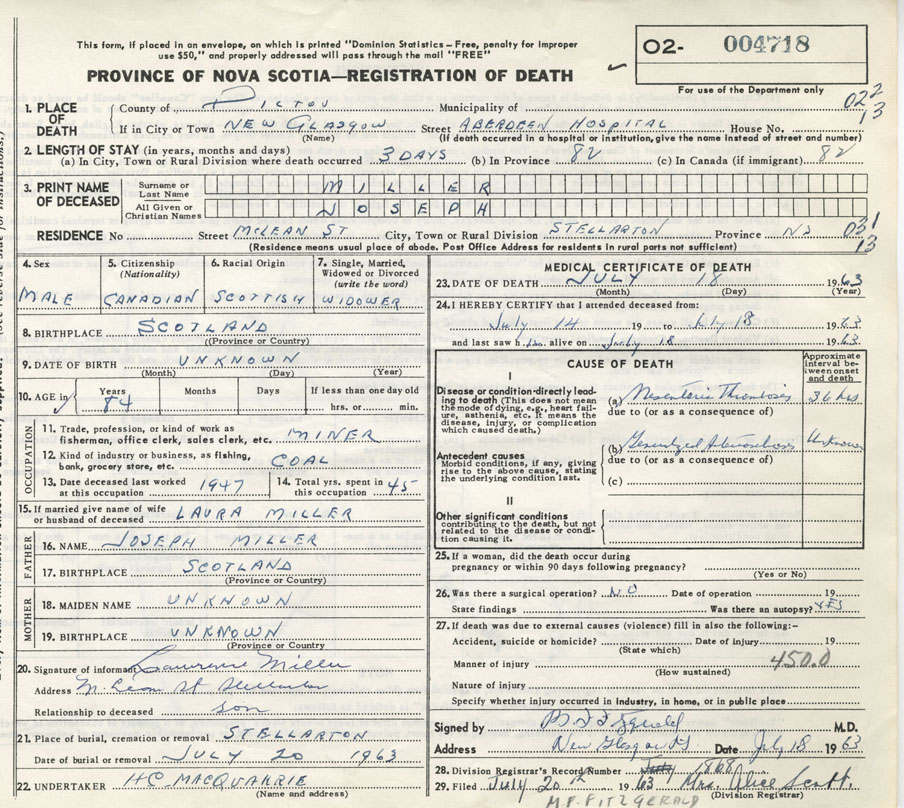 This form, if placed in an envelope, on which is printed "Dominion Statistics – Free, penalty for improper
use $50," and properly addressed will pass through the mail "FREE"
PROVINCE OF NOVA SCOTIA—REGISTRATION OF DEATH
O2- 004718
For use of the Department only
022
13
1. PLACE OF DEATH
County of PICTOU Municipality of
If in City or Town NEW GLASGOW Street ABERDEEN HOSPITAL House No.
(Name) (If death occurred in a hospital or institution, give the name instead of street and number)
2. LENGTH OF STAY (in years, months and days)
(a) In City, Town or Rural Division where death occurred 3 DAYS (b) In Province 82 (c) In Canada (if immigrant) 82
3. PRINT NAME OF DECEASED
Surname or Last Name MILLER
All Given or Christian Names JOSEPH
RESIDENCE No Street McLEAN ST City, Town or Rural Division STELLARTON Province NS
031
13
(Residence means usual place of abode. Post Office Address for residents in rural parts not sufficient)
4. Sex MALE
5. Citizenship (Nationality) CANADIAN
6. Racial Origin SCOTTISH
7. Single, Married, Widowed or Divorced (write the word) WIDOWER
8. BIRTHPLACE SCOTLAND
(Province or Country)
9. DATE OF BIRTH UNKNOWN
(Month) (Day) (Year)
10. AGE in Years 84 Months Days If less than one day old
hrs. or min.
OCCUPATION
11. Trade, profession, or kind of work as
fisherman, office clerk, sales clerk, etc. MINER
12. Kind of industry or business, as fishing,
bank, grocery store, etc. COAL
13. Date deceased last worked at this occupation 1947
14. Total yrs. spent in this occupation 45
15. If married give name of wife
or husband of deceased LAURA MILLER
FATHER
16. NAME JOSEPH MILLER
17. BIRTHPLACE SCOTLAND
(Province or Country)
MOTHER
18. MAIDEN NAME UNKNOWN
19. BIRTHPLACE UNKNOWN
(Province or Country)
20. Signature of informant Lawrence Miller
Address McLean St Stellarton
Relationship to deceased son
21. Place of burial, cremation or removal STELLARTON
Date of burial or removal JULY 20 1963
22. UNDERTAKER H.C. MACQUARRIE
(Name and address)
MEDICAL CERTIFICATE OF DEATH
23. DATE OF DEATH JULY 18 1963
(Month) (Day) (Year)
24. I HEREBY CERTIFY that I attended deceased from:
July 14 19 to July 18 1963
and last saw him alive on July 18 1963
CAUSE OF DEATH
Approximate interval between onset and death
I
Disease or condition directly leading to death (This does not mean the mode of dying, e.g., heart failure, asthenia, etc. It means the disease, injury, or complication which caused death.)
(a) Mesenteric Thrombosis 36 hrs
due to (or as a consequence of)
Antecedent causes
Morbid conditions, if any, giving rise to the above cause, stating the underlying condition last.
(b) Generalized Unknown
due to (or as a consequence of)
(c)
II
Other significant conditions
contributing to the death, but not related to the disease or condition causing it.
25. If a woman, did the death occur during
pregnancy or within 90 days following pregnancy?
(Yes or No)
26. Was there a surgical operation? NO Date of operation 19
State findings Was there an autopsy? YES
27. If death was due to external causes (violence) fill in also the following:-
Accident, suicide or homicide? Date of injury 19
(State which)
Manner of injury 450.0
(How sustained)
Nature of injury
Specify whether injury occurred in industry, in home, or in public place
Signed by M.D.
Address New Glasgow NS Date July 18 1963
28. Division Registrar's Record Number 1868
29. Filed July 20th 1963 Mrs. Alice Scott.
(Division Registrar)
M.F. FITZGERALD